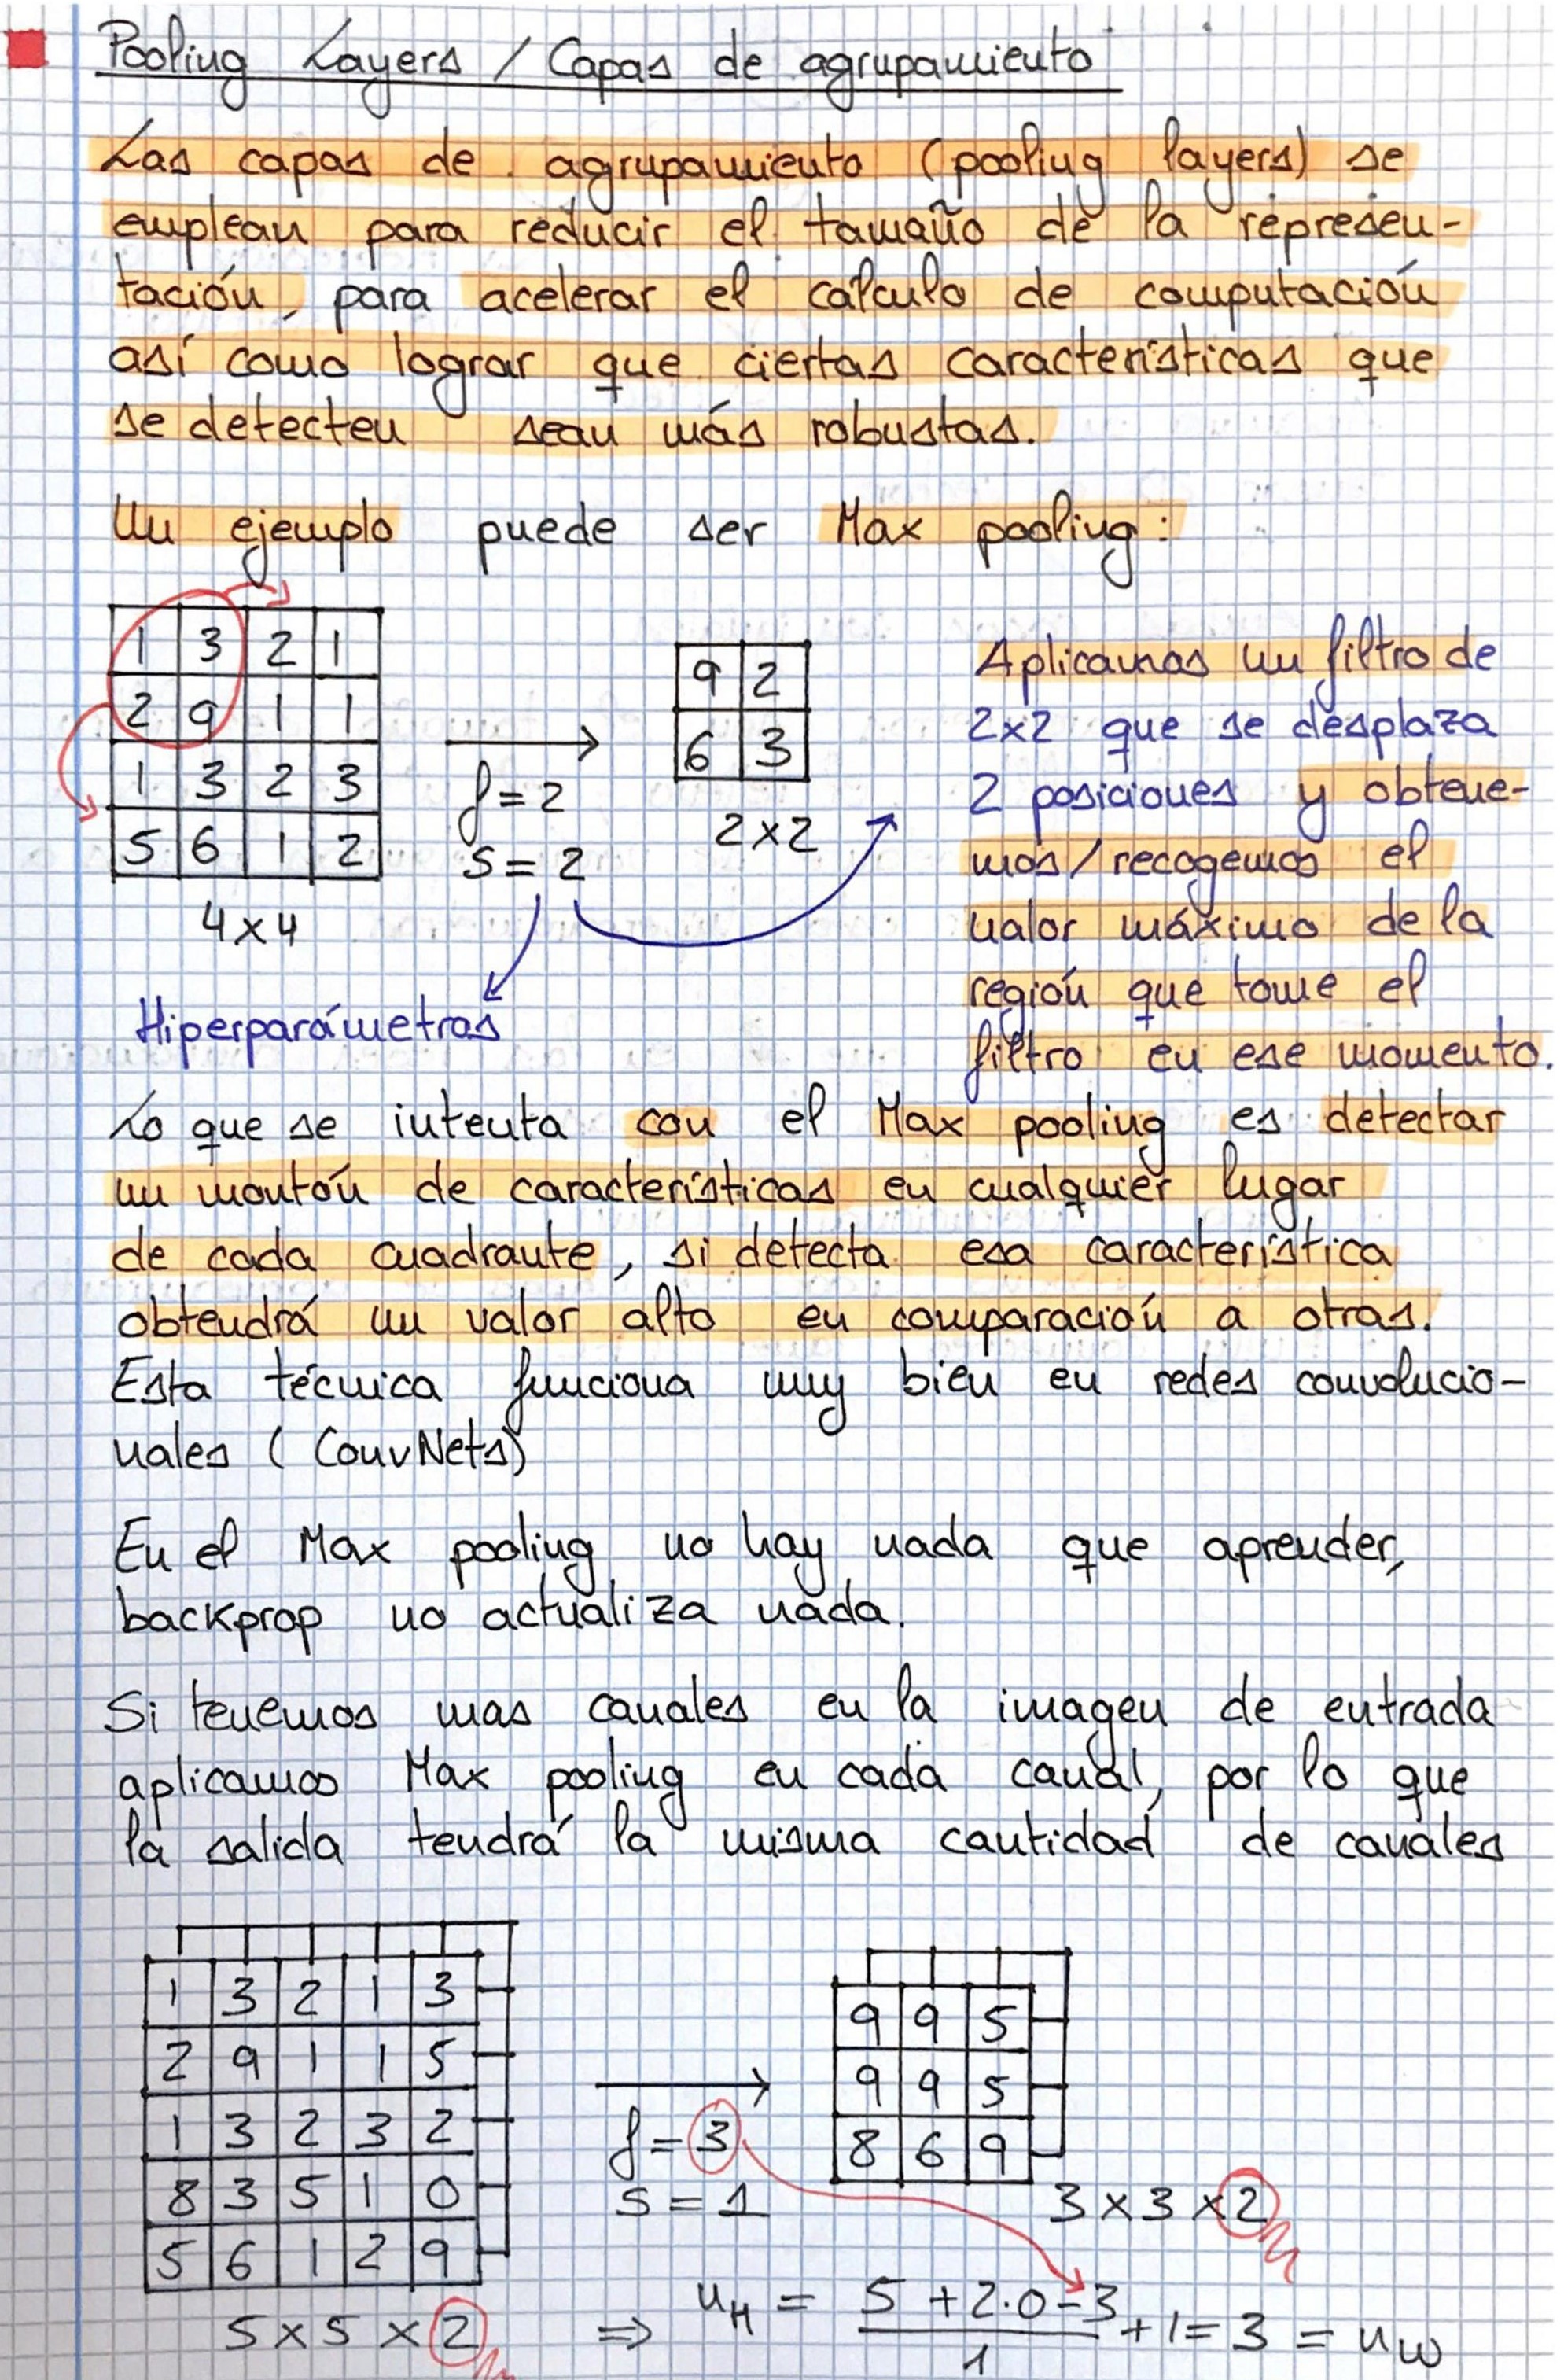 Pooling Layers / Capas de agrupamiento
Las capas de agrupamiento (pooling layers) se
emplean para reducir el tamaño de la represen-
tación, para acelerar el cálculo de computación
así como lograr que ciertas características que
se detecten sean más robustas.
Un ejemplo puede ser Max pooling:
1 3 2 1
2 9 1 1
1 3 2 3
5 6 1 2
4x4
f=2
s=2
9 2
6 3
2x2
Hiperparámetros
Aplicamos un filtro de
2x2 que se desplaza
2 posiciones y obtene-
mos/recogemos el
valor máximo de la
región que tome el
filtro en ese momento.
Lo que se intenta con el Max pooling es detectar
un montón de características en cualquier lugar
de cada cuadrante, si detecta esa característica
obtendrá un valor alto en comparación a otras.
Esta técnica funciona muy bien en redes convolucio-
nales (ConvNets)
En el Max pooling no hay nada que aprender,
backprop no actualiza nada.
Si tenemos mas canales en la imagen de entrada
aplicamos Max pooling en cada canal, por lo que
la salida tendrá la misma cantidad de canales
1 3 2 1 3
2 9 1 1 5
1 3 2 3 2
8 3 5 1 0
5 6 1 2 9
5 x 5 x 2
f=3
s=1
9 9 5
9 9 5
8 6 9
3 x 3 x 2
⇒ n_H = (5 + 2·0 - 3)/1 + 1 = 3 = n_W